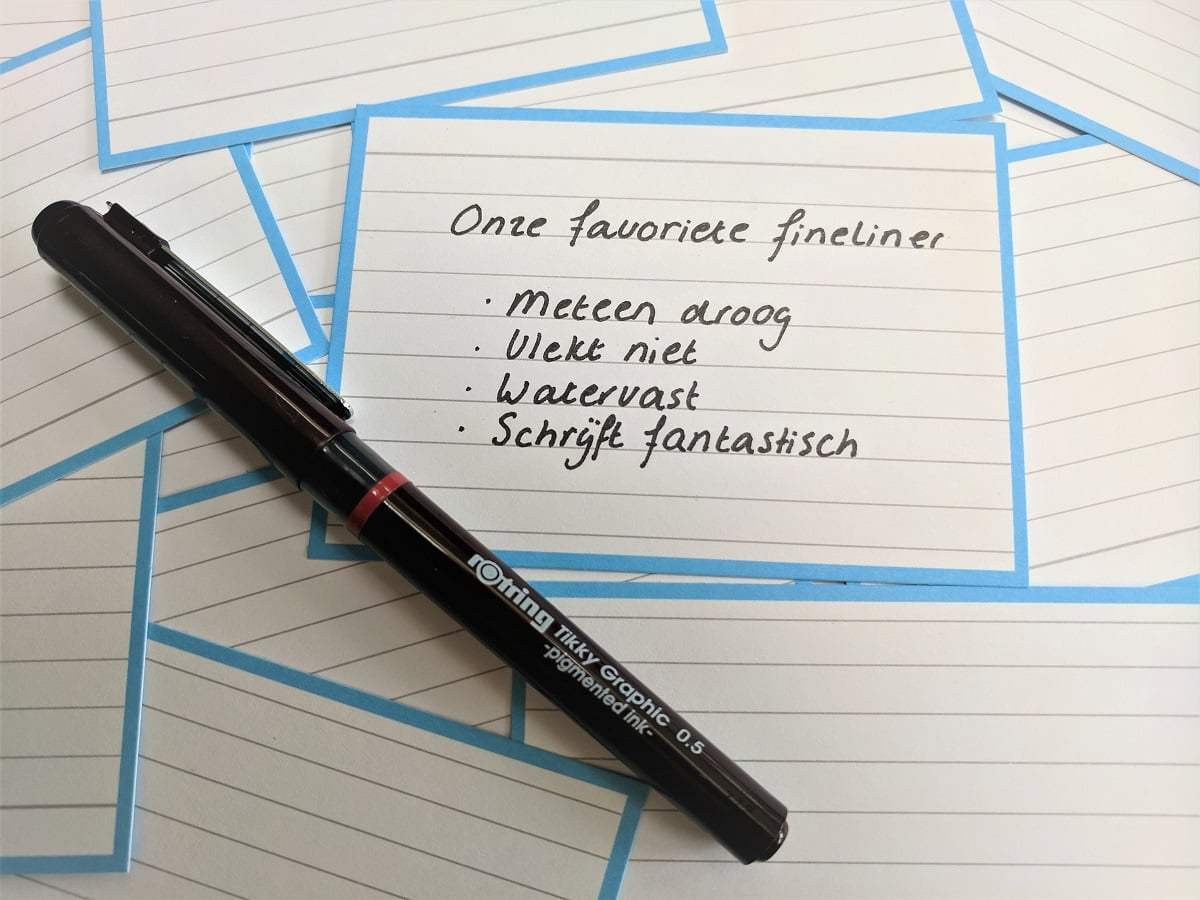 Onze favoriete fineliner
· Meteen droog
· Vlekt niet
· Watervast
· Schrijft fantastisch
rotring Tikky Graphic 0.5
-pigmented ink-